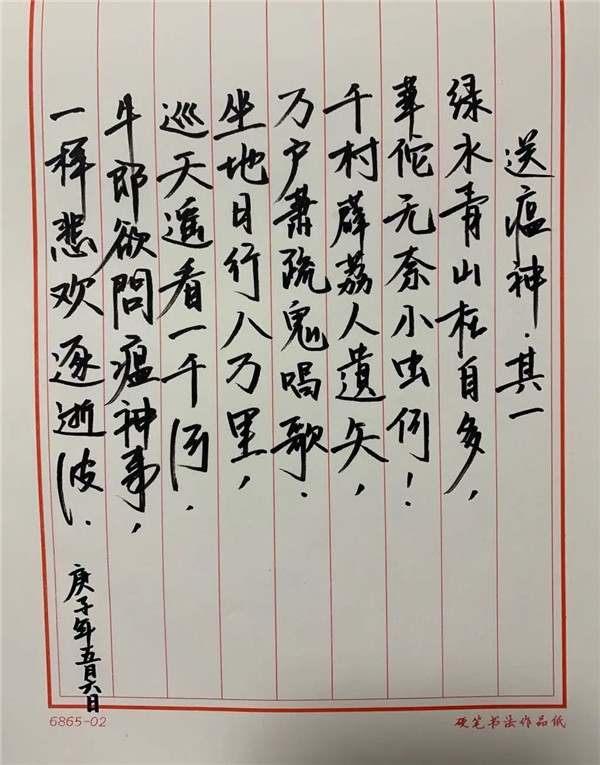 送瘟神·其一
绿水青山枉自多，
華佗无奈小虫何！
千村薜荔人遺矢，
万户蕭疏鬼唱歌．
坐地日行八万里，
巡天遥看一千河．
牛郎欲問瘟神事，
一样悲欢逐逝波．
庚子年五月六日
6865-02
硬笔书法作品纸